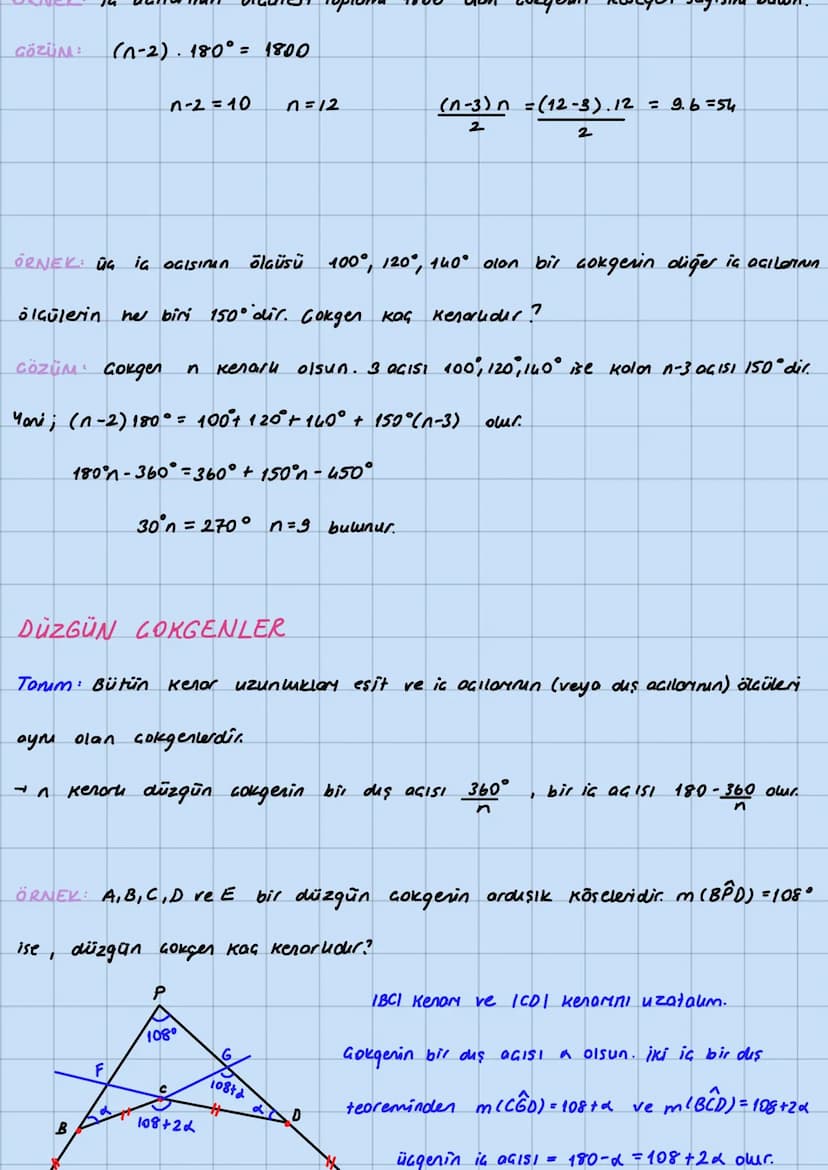 ÖRNEK: İç açılarının ölçüleri toplamı 1800° olan çokgenin köşegen sayısını bulun.
ÇÖZÜM: (n-2) . 180° = 1800
n-2 = 10 n = 12 (n-3)n/2 = (12-3).12/2 = 9.6 = 54
ÖRNEK: üç iç açısının ölçüsü 100°, 120°, 140° olan bir çokgenin diğer iç açılarının
ölçülerin her biri 150°'dir. Çokgen kaç kenarlıdır?
ÇÖZÜM: Çokgen n kenarlı olsun. 3 açısı 100°, 120°, 140° ise kalan n-3 açısı 150°dir.
Yani; (n-2)180° = 100°+ 120°+ 140° + 150°(n-3) olur.
180°n - 360° = 360° + 150°n - 450°
30°n = 270° n = 9 bulunur.
DÜZGÜN ÇOKGENLER
Tanım: Bütün kenar uzunlukları eşit ve iç açılarının (veya dış açılarının) ölçüleri
aynı olan çokgenlerdir.
→ n kenarlı düzgün çokgenin bir dış açısı 360°/n , bir iç açısı 180 - 360/n olur.
ÖRNEK: A, B, C, D ve E bir düzgün çokgenin ardışık köşeleridir. m(BP̂D) = 108°
ise, düzgün çokgen kaç kenarlıdır?
P
108°
F
G
C
108+α
α
α
B
D
108+2α
|BC| kenarı ve |CD| kenarını uzatalım.
Çokgenin bir dış açısı α olsun. İki iç bir dış
teoreminden m(CĜD) = 108+α ve m(BĈD) = 108+2α
üçgenin iç açısı = 180-α = 108+2α olur.